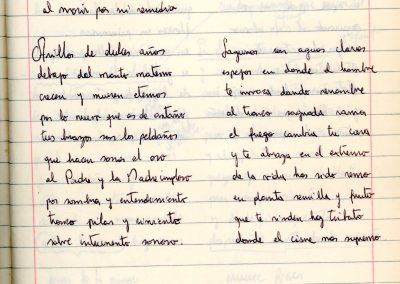 al morir por mi remedia
Anillos de dulces años
debajo del manto materno
crecen y mueren eternos
por lo nuevo que es de antaño
tus brazos son los peldaños
que hacen sonar el oro
al Padre y la Madre imploro
por sombra y entendimiento
tronco pilar y cimiento
sobre instrumento sonoro.
Lagunas son aguas claras
espejos en donde el hombre
te invoca dando renombre
al tronco sagrada rama
el fuego cambia tu cara
y te abraza en el extremo
de la vida has sido remo
en planta semilla y fruto
que te rinden hoy tributo
donde el cisne mas supremo